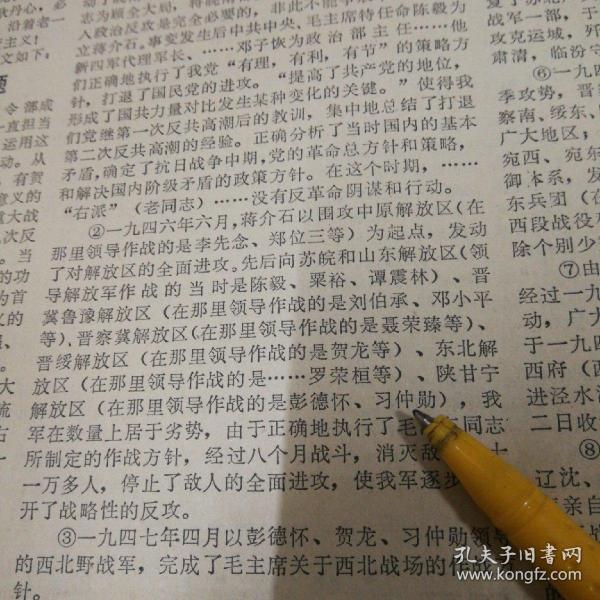 志为顾全大局，
人政治反攻是完全必要的，非此不能
立蒋介石。事变发生后中共中央、毛主席特任命陈毅为
新四军代理军长、……邓子恢为政治部主任……他
们正确地执行了我党“有理，有利，有节”的策略方
针，打退了国民党的进攻。“提高了共产党的地位，
形成了国共力量对比发生某种变化的关键。”使得我
们党继第一次反共高潮后的教训，集中地总结了打退
第二次反共高潮的经验。正确分析了当时国内的基本
矛盾，确定了抗日战争中期，党的革命总方针和策略，
和解决国内阶级矛盾的政策方针。在这个时期，……
“右派”（老同志）……没有反革命阴谋和行动。
②一九四六年六月，蒋介石以围攻中原解放区（在
那里领导作战的是李先念、郑位三等）为起点，发动
了对解放区的全面进攻。先后向苏皖和山东解放区（领
导解放军作战的当时是陈毅、粟裕、谭震林）、晋
冀鲁豫解放区（在那里领导作战的是刘伯承、邓小平
等）、晋察冀解放区（在那里领导作战的是聂荣臻等）、
晋绥解放区（在那里领导作战的是贺龙等）、东北解
放区（在那里领导作战的是……罗荣桓等）、陕甘宁
解放区（在那里领导作战的是彭德怀、习仲勋），我
军在数量上居于劣势，由于正确地执行了毛 同志
所制定的作战方针，经过八个月战斗，消灭敌 十
一万多人，停止了敌人的全面进攻，使我军逐步
开了战略性的反攻。
③一九四七年四月以彭德怀、贺龙、习仲勋领导
的西北野战军，完成了毛主席关于西北战场的作战
针。
战军一部，于
攻克运城，
肃清，临汾守
⑥一九四
季攻势，
察南、绥东、
广大地区；
宛西、宛东
御体系，
东兵团（在
西段战役
除个别少
⑦由
经过一九
动，广大
于一九四
西府（西
进泾水
二日收
⑧
辽沈、
亲自
孔夫子旧书网
www.kongfz.com